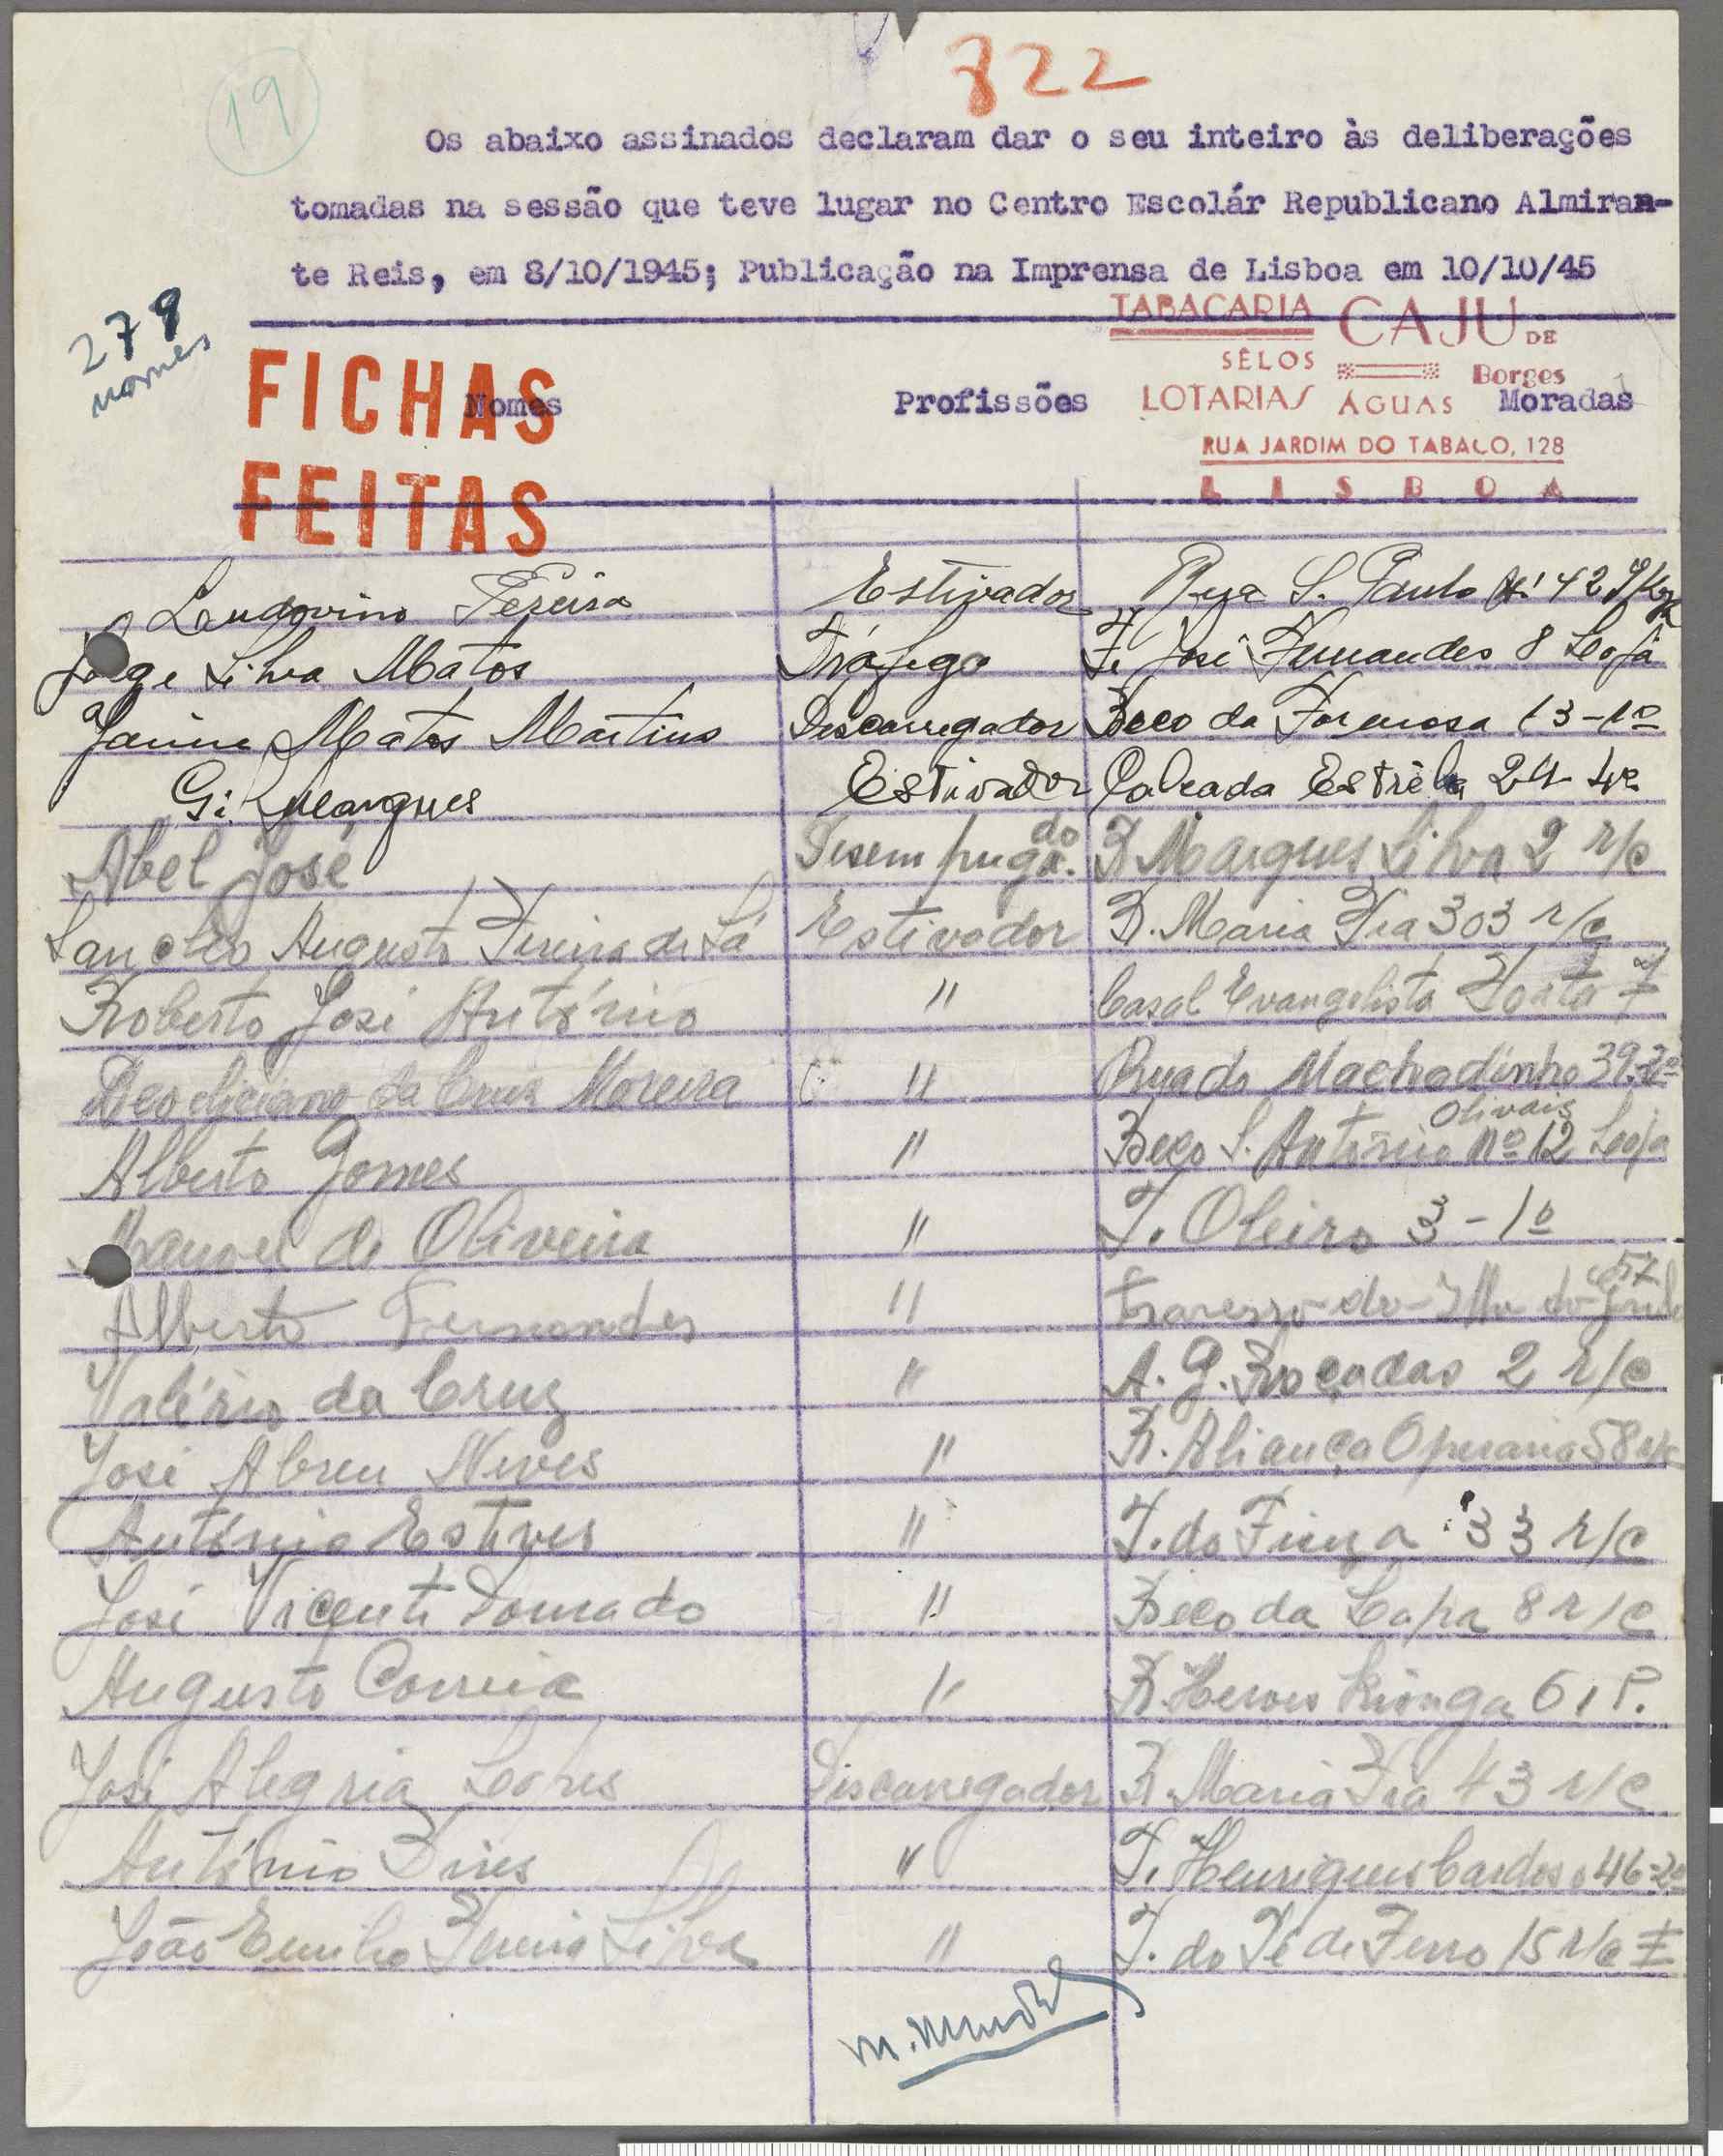 19
822
Os abaixo assinados declaram dar o seu inteiro às deliberações
tomadas na sessão que teve lugar no Centro Escolár Republicano Almiran-
te Reis, em 8/10/1945; Publicação na Imprensa de Lisboa em 10/10/45
279
nomes
TABACARIA CAJU DE
SÊLOS Borges
LOTARIAS ÁGUAS
RUA JARDIM DO TABACO, 128
LISBOA
FICHAS
FEITAS
Nomes Profissões Moradas
Pereira Estivador Rua S. Paulo Nº 42
Jorge Silva Matos Tráfego T. José Fernandes 8 Loja
Jaime Matos Martins Descarregador Beco da Formosa 13-1º
Gil Marques Estivador Calçada Estrêla 24
Abel José Desempregado R Marques Silva 2 r/c
Sancho Augusto de Sá Estivador R. Maria Pia 303 r/c
Roberto José António " Casal Evangelista Porta 7
da Cruz Moreira " Rua do Machadinho 39
Alberto Gomes " Beco S. António nº 12 Loja Olivais
Manoel de Oliveira " T. Oleiro 3-1º
Alberto Fernandes " 57
Valério da Cruz " A. G. Roçadas 2 r/c
José Abreu Neves " R. Aliança Operaria 58 r/c
António Esteves " T. do Fiuza 33 r/c
José Vicente Dourado " Beco da Lapa 8 r/c
Augusto Correia " R. Herois Kionga 6
José Alegria Descarregador R. Maria Pia 43 r/c
António " T. Henriques Cardoso 46-2º
João Emilio Silva " T. do Pé de Ferro 15 r/c E